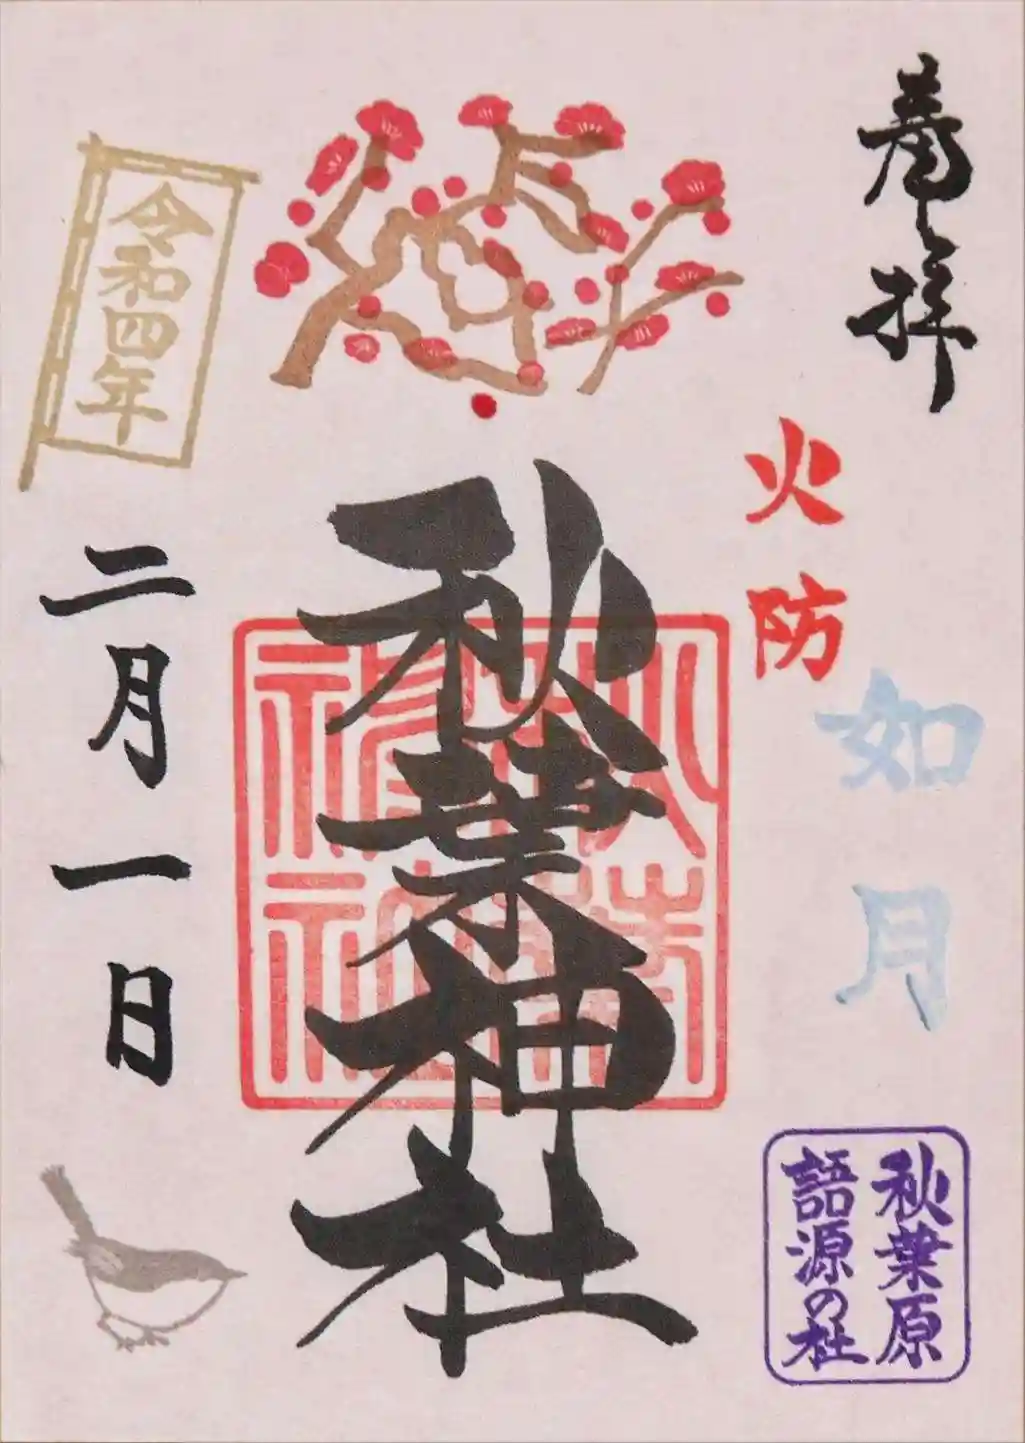 奉拝
火防
如月
秋葉原
語源の社
秋葉神社
秋葉
神社
令和四年
二月一日